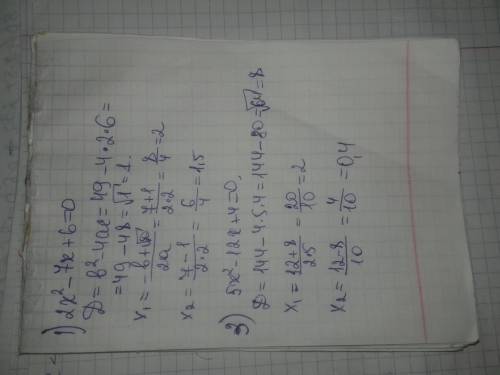 1) 2x²-7x+6=0
D=b²-4ac=49-4•2•6=
=49-48=√1=1.
x₁=(-b+√D)/2a=(7+1)/(2•2)=8/4=2
x₂=(7-1)/(2•2)=6/4=1,5
3) 5x²-12x+4=0,
D=144-4.5.4=144-80=√64=8
x₁=(12+8)/(2•5)=20/10=2
x₂=(12-8)/10=4/10=0,4